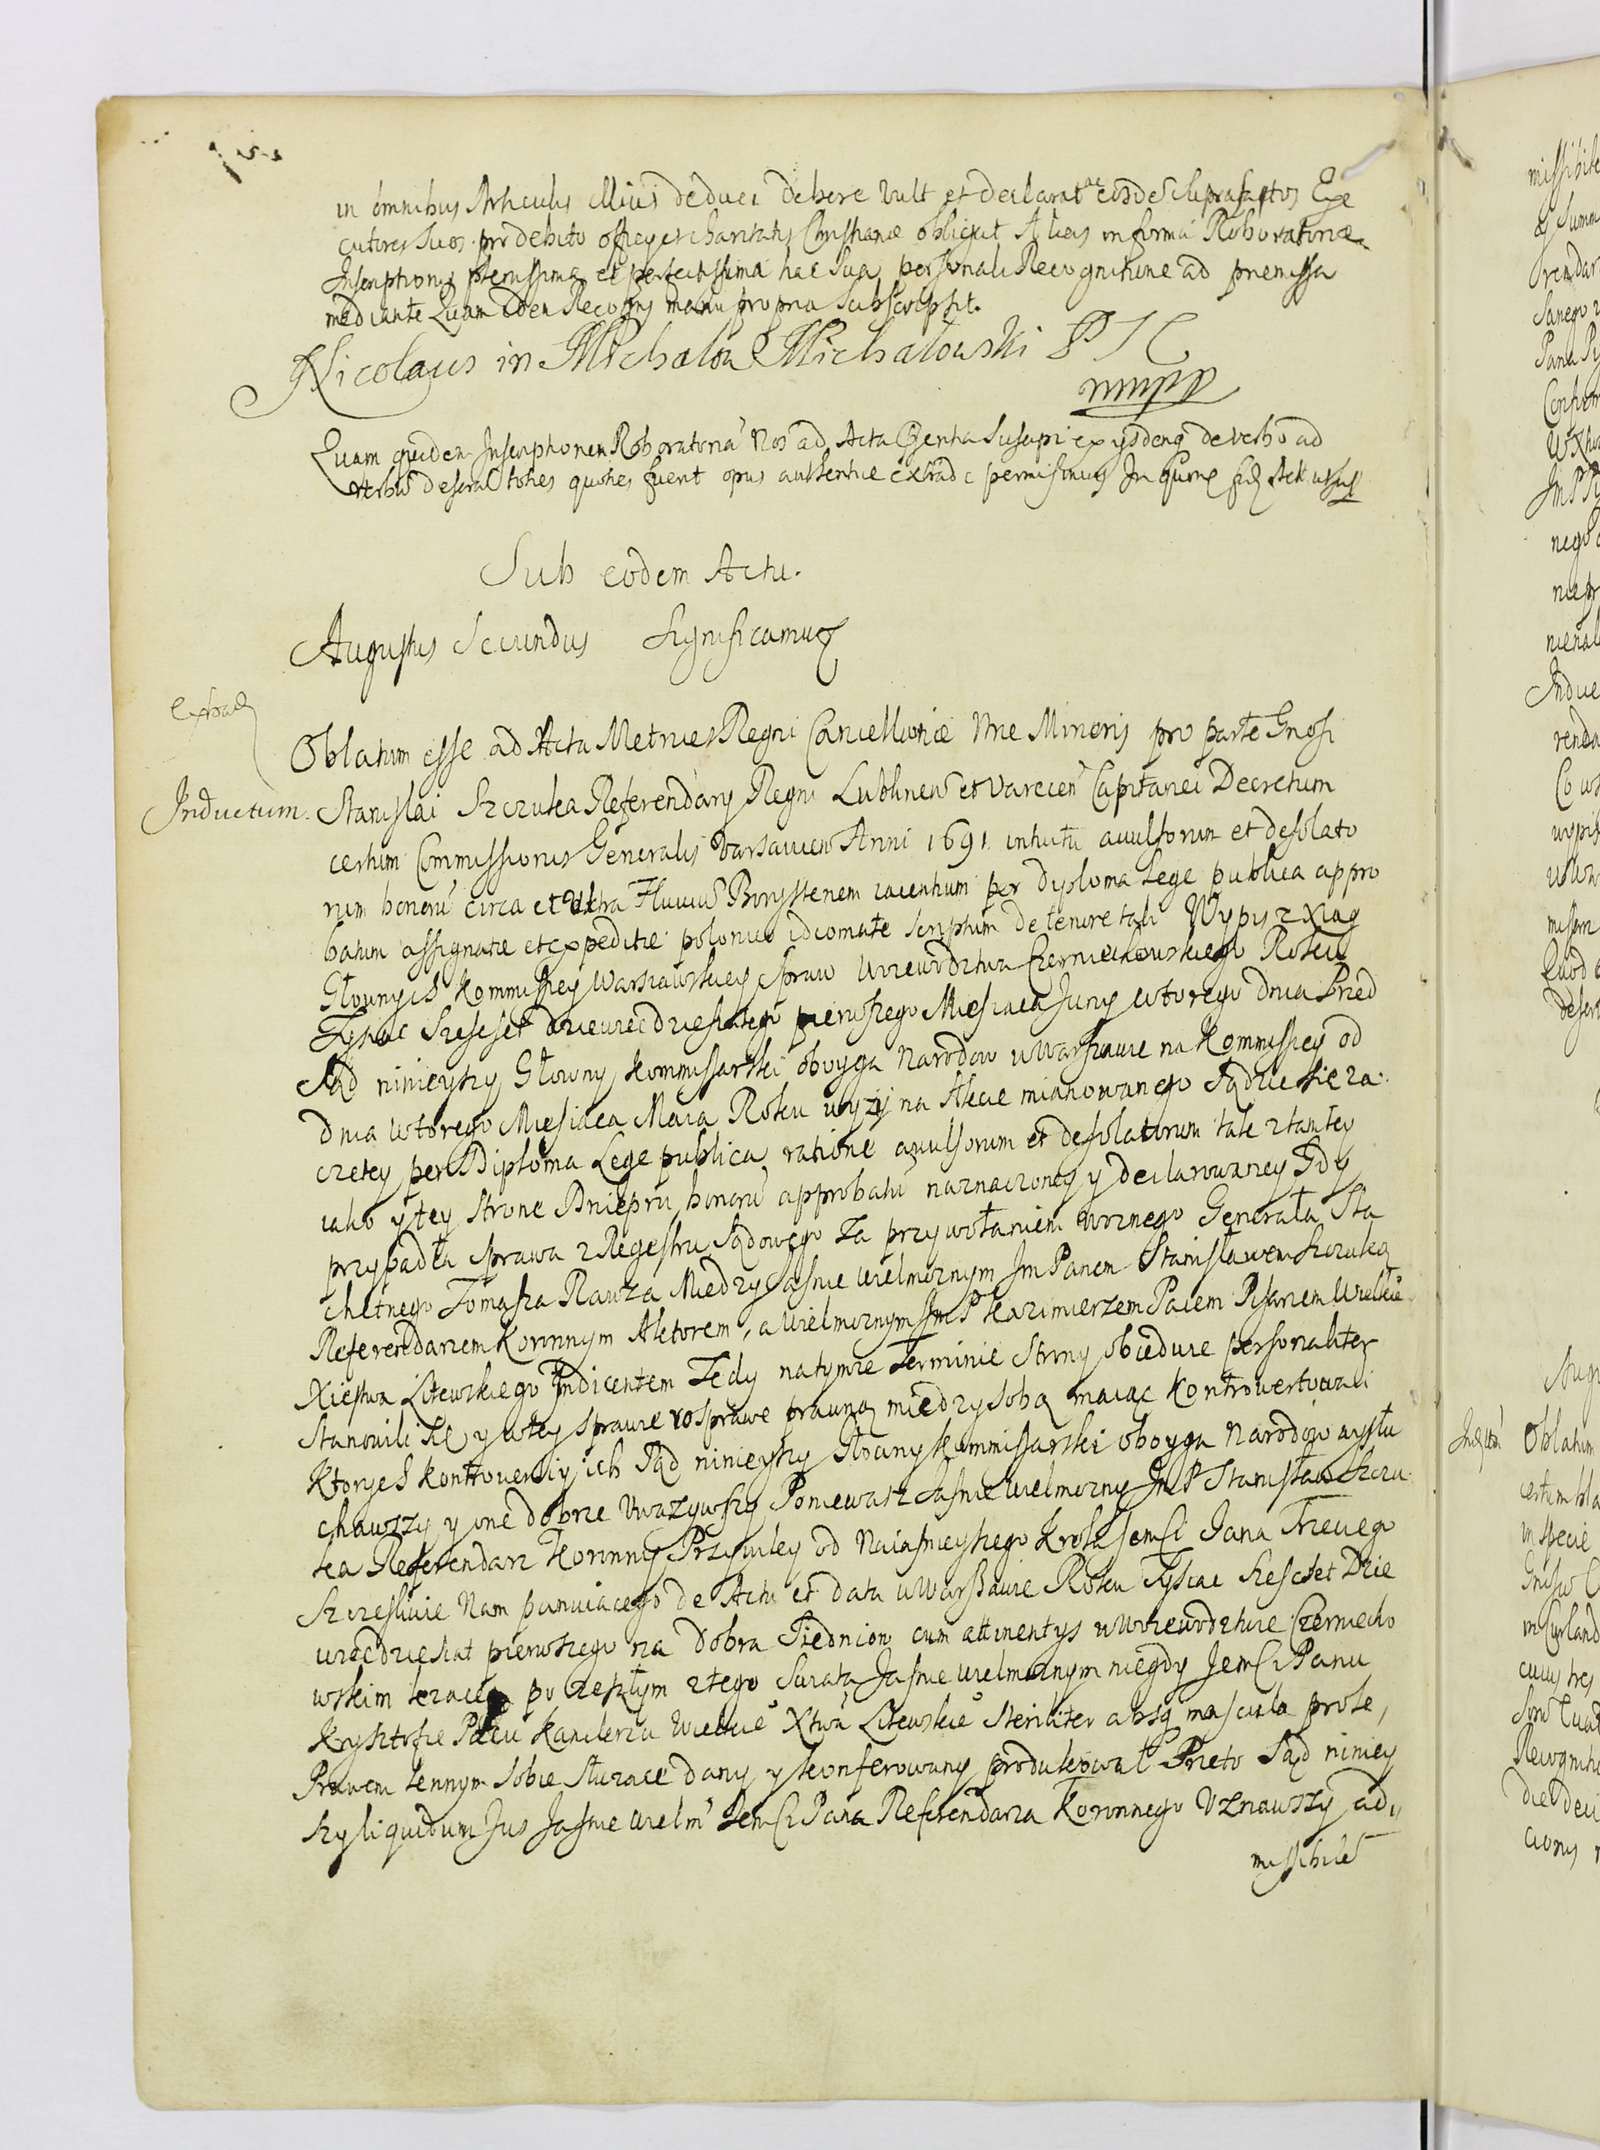 in omnibus Articulis illius deduci debere vult et declarat ac eosdem suprafatos Exe
cutores suos pro debito officij et charitatis Christianae obligat Alias in forma Roboratoriae
Inscriptionis plenissima et perfectissima hac sua personali Recognitione ad premissa
mediante Quam idem Recogns manu propria subscripsit.
Nicolaus in Michałow Michałowski
mmpp
Quam quidem Inscriptionem Roboratoria Nos ad Acta suscipi ex ijsdemq de verbo ad
verbu descrat toties quoties fuerit opus authentice extradi permisimus In quoru fid
Sub eodem Actu.
Augustus Secundus Significamus
Extrad
Oblatum esse ad Acta Metrices Regni Cancellariae Nrae Minoris pro parte Gnosi
Inductum.
Stanislai Szczuka Referendary Regni Lublinen et Varecen Capitanei Decretum
certum Commissionis Generalis Varsavien Anni 1691 intuitu avulsorum et desolato
rum bonoru circa et ultra Fluviu Borysthenem iacentium per diploma Lege publica appro
batum assignatae et expeditae polonico idiomate scriptum de tenore tali Wypis z Xiąg
Głownych Kommissyey Warszawskiey Spraw Woiewodztwa Czerniechowskiego Roku
Tysiąc Szescset dziewiecdziesiątego pierwszego Miesiaca Juny wtorego dnia Przed
Sąd ninieyszy Głowny Kommissarski oboyga Narodow w Warszawie na Kommissyey od
dnia wtorego Miesiaca Maia Roku wyzy na Akcie mianowanego Sądzic sie za-
czetey per Diploma Lege publica, ratione avulsorum et desolatorum tak z tamtey
iako y tey strone Dniepru bonoru approbatu naznaczoney y declarowaney Gdy
przypadła sprawa z Regestru Sądowego Za przywołaniem Woznego Generała Szla
chetnego Tomasza Rawza Miedzy Jasnie Wielmoznym Jm Panem Stanisławem Szczuką
Referendarzem Koronnym Aktorem, a Wielmoznym Jm P Kazimierzem Pacem Pisarzem Wielkie
Xiestwa Litewskiego Indicentem Tedy na tymze Terminie Strony obiedwie personaliter
Stanowili sie y w tey sprawie rosprawe prawną miedzy sobą maiąc kontrowertowali
Ktorych kontrowersiy ich Sąd ninieyszy Głowny Kommissarski oboyga Narodow wysłu
chawszy y one dobrze Uwazywszy, Poniewasz Jasnie Wielmozny Jm P Stanisław Szczu-
ka Referendarz Koronny Przywiley od Naiasnieyszego Krola JemCi Jana Trzeciego
Szczesliwie Nam panuiącego de Actu et data w Warszawie Roku Tysiac Szescset Dzie
wiecdziesiat pierwszego na Dobra Siedniow cum attinentys w Woiewodztwie Czerniecho
wskim lezące po zeszłym z tego Swiata Jasnie Wielmoznym niegdy JemCi Panu
Krysztofie Pacu Kanclerzu Wielkie Xtwa Litewskie steriliter absq mascula prole,
Prawem Lennym sobie słuzące dany y konferowany produkował Przeto Sąd niniey
szy liquidum Jus Jasnie Wielm JemCi Pana Referendarza Koronnego Uznawszy, ad-
missibile